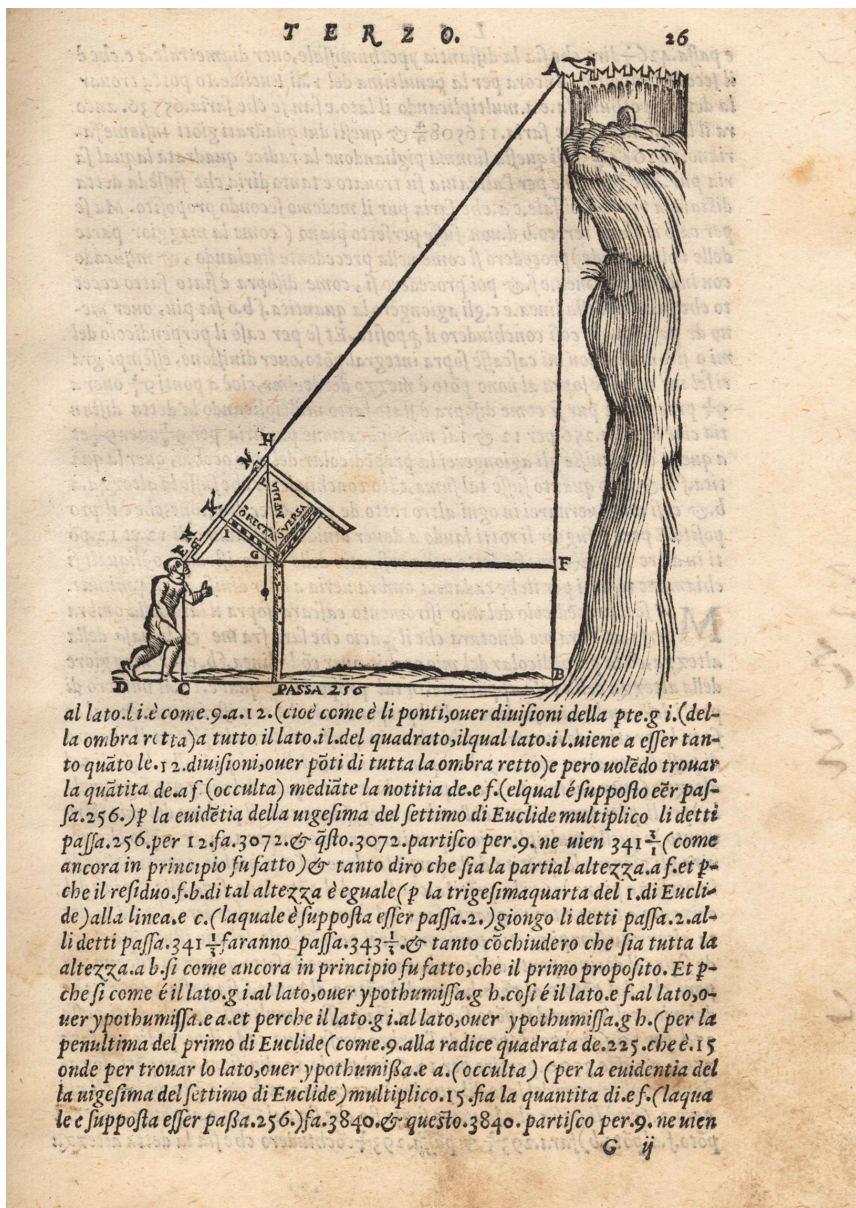 TERZO. 26
A
H
N
K
E N
I
G
ORECTA
VERSA
F
D C B
PASSA 256
al lato.l i.è come.9.a.12.(cioè come è li ponti,ouer diuisioni della pte.g i.(del-
la ombra retta)a tutto il lato.i l.del quadrato,ilqual lato.i l.uiene a esser tan-
to quāto le.12.diuisioni,ouer pōti di tutta la ombra retto)e pero uolēdo trouar
la quātita de.a f(occulta) mediāte la notitia de.e f.(elqual é supposto eēr pas-
sa.256.)p la euidētia della uigesima del settimo di Euclide multiplico li detti
passa.256.per 12.fa.3072.& q̄sto.3072.partisco per.9. ne uien 341 3/1 (come
ancora in principio fu fatto)& tanto diro che sia la partial altezza.a f.et p-
che il residuo.f.b.di tal altezza è eguale(p la trigesimaquarta del 1.di Eucli-
de)alla linea.e c.(laquale è supposta esser passa.2.)giongo li detti passa.2.al-
li detti passa.341 1/3 faranno passa.343 1/3.& tanto cōchiudero che sia tutta la
altezza.a b.si come ancora in principio fu fatto,che il primo proposito. Et p-
che si come é il lato.g i.al lato,ouer ypothumissa.g h.cosi é il lato.e f.al lato,o-
uer ypothumissa.e a.et perche il lato.g i.al lato,ouer ypothumissa.g h.(per la
penultima del primo di Euclide(come.9.alla radice quadrata de.225.che è.15
onde per trouar lo lato,ouer ypothumißa.e a.(occulta) (per la euidentia del
la uigesima del settimo di Euclide)multiplico.15.fia la quantita di.e f.(laqua
le e supposta esser paßa.256.)fa.3840.& questo.3840.partisco per.9.ne uien
G ij